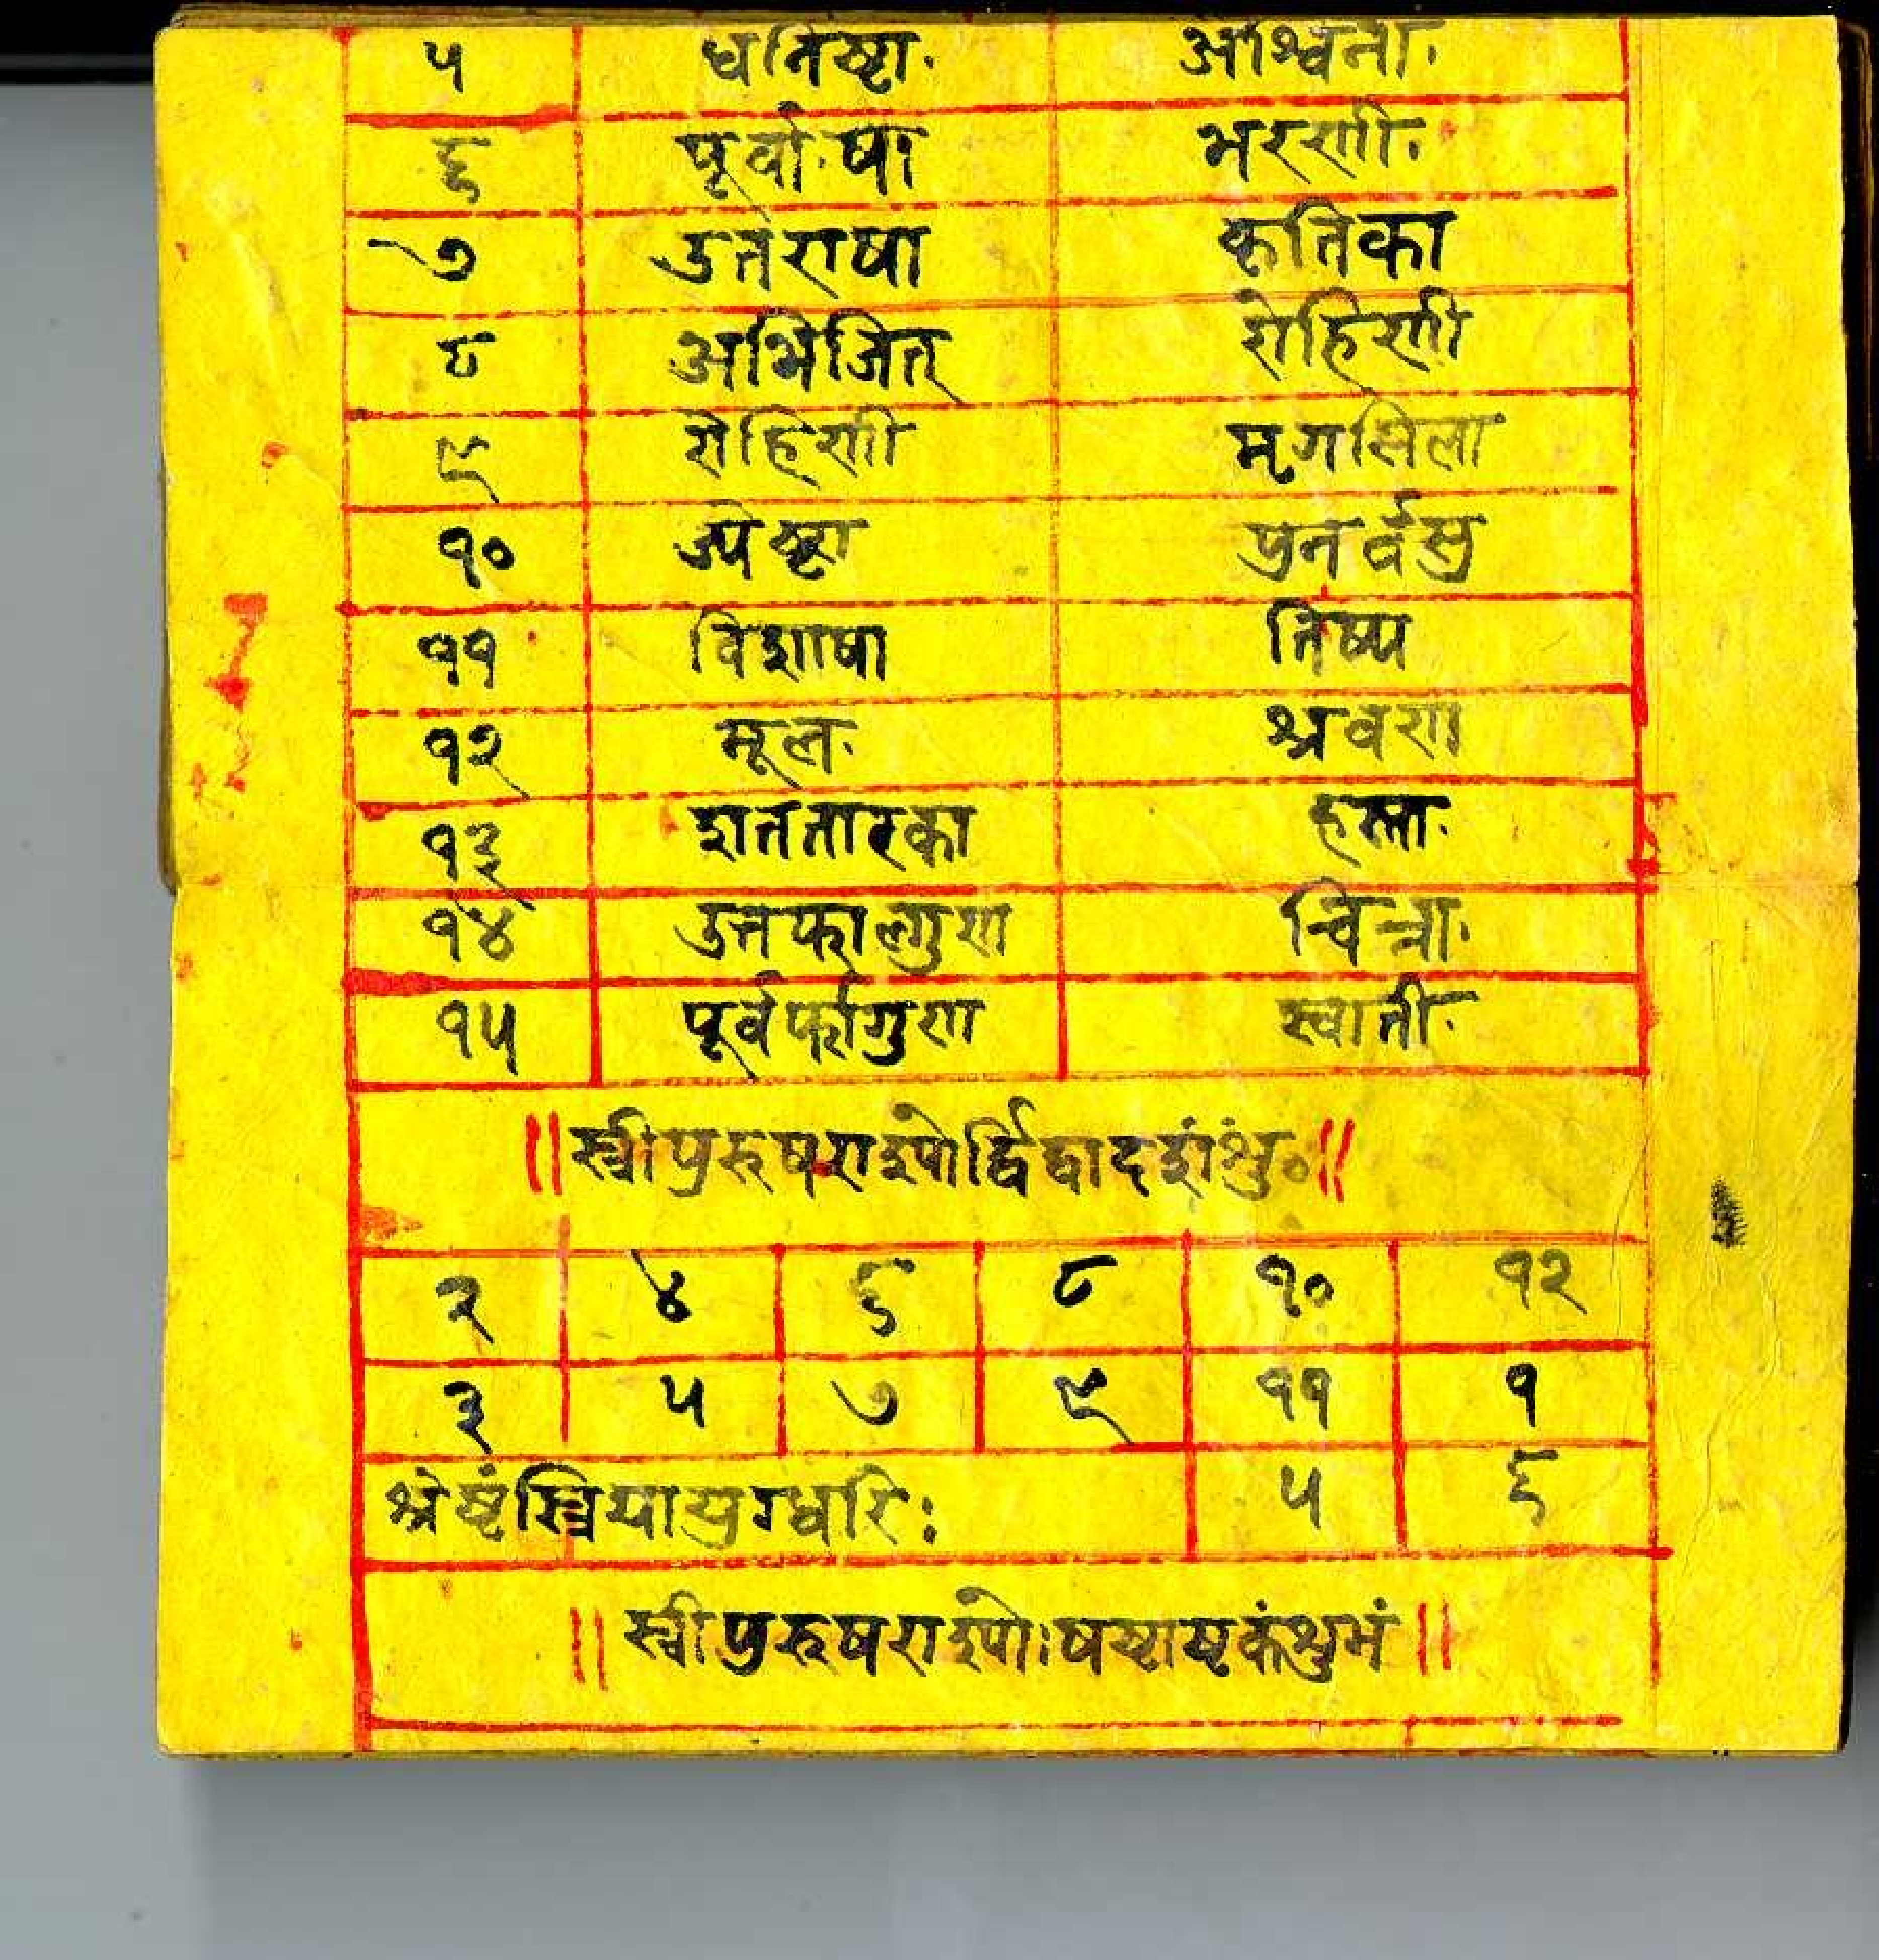 ५ धनिष्टा. अश्विनी.
६ पूर्वा.षा भरणी.
७ उत्तराषा कृतिका
८ अभिजित् रोहिणी
९ रोहिणी मृगसिला
१० ज्येष्टा पुनर्वसु
११ विशाषा तिष्य
१२ मूल. श्रवण
१३ शततारका हस्त.
१४ उतफाल्गुण चित्रा.
१५ पूर्वर्फागुण स्वाती.
॥स्त्रीपुरूषराश्योर्द्विद्वादशंशुं०॥
२ ४ ६ ८ १० १२
३ ५ ७ ९ ११ १
श्रेष्टंस्त्रिया ५ ६
॥स्त्रीपुरूषराश्योःषष्टाष्टकंशुभं॥